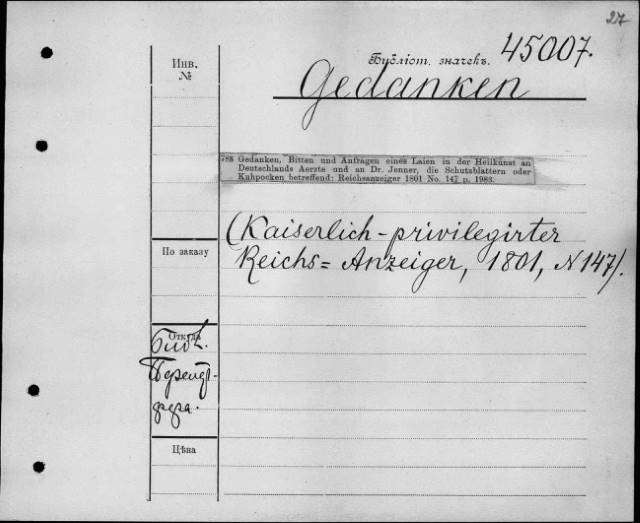 27
Библіот. значекъ. 45007.
Инв.
№
Gedanken
788 Gedanken, Bitten und Anfragen eines Laien in der Heilkunst an
Deutschlands Aerzte und an Dr. Jenner, die Schutzblattern oder
Kuhpocken betreffend: Reichsanzeiger 1801 No. 147 p. 1983.
(Kaiserlich-privilegirter
Reichs= Anzeiger, 1801, N147).
По заказу
Откуда
Библ.
Цѣна